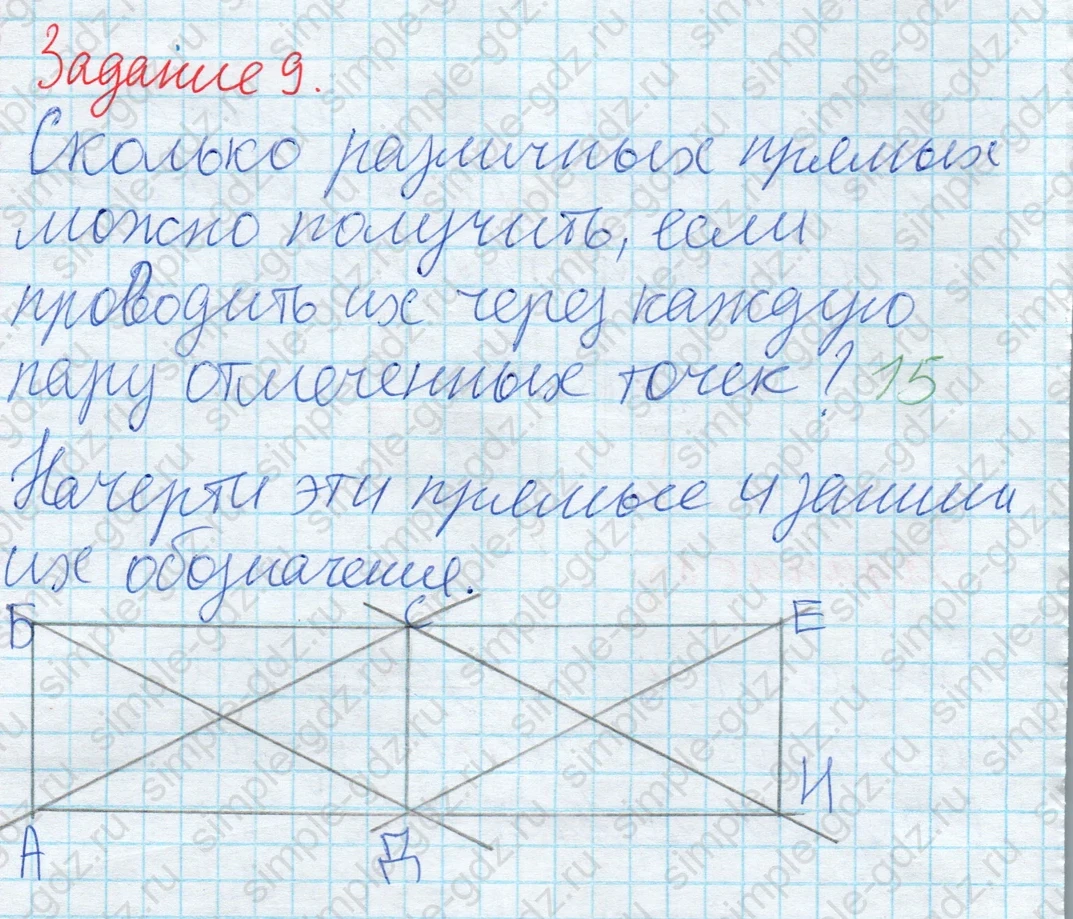 Задание 9.
Сколько различных прямых
можно получить, если
проводить их через каждую
пару отмеченных точек? 15
Начерти эти прямые и запиши
их обозначения.
Б С Е
А Д И
simple-gdz.ru